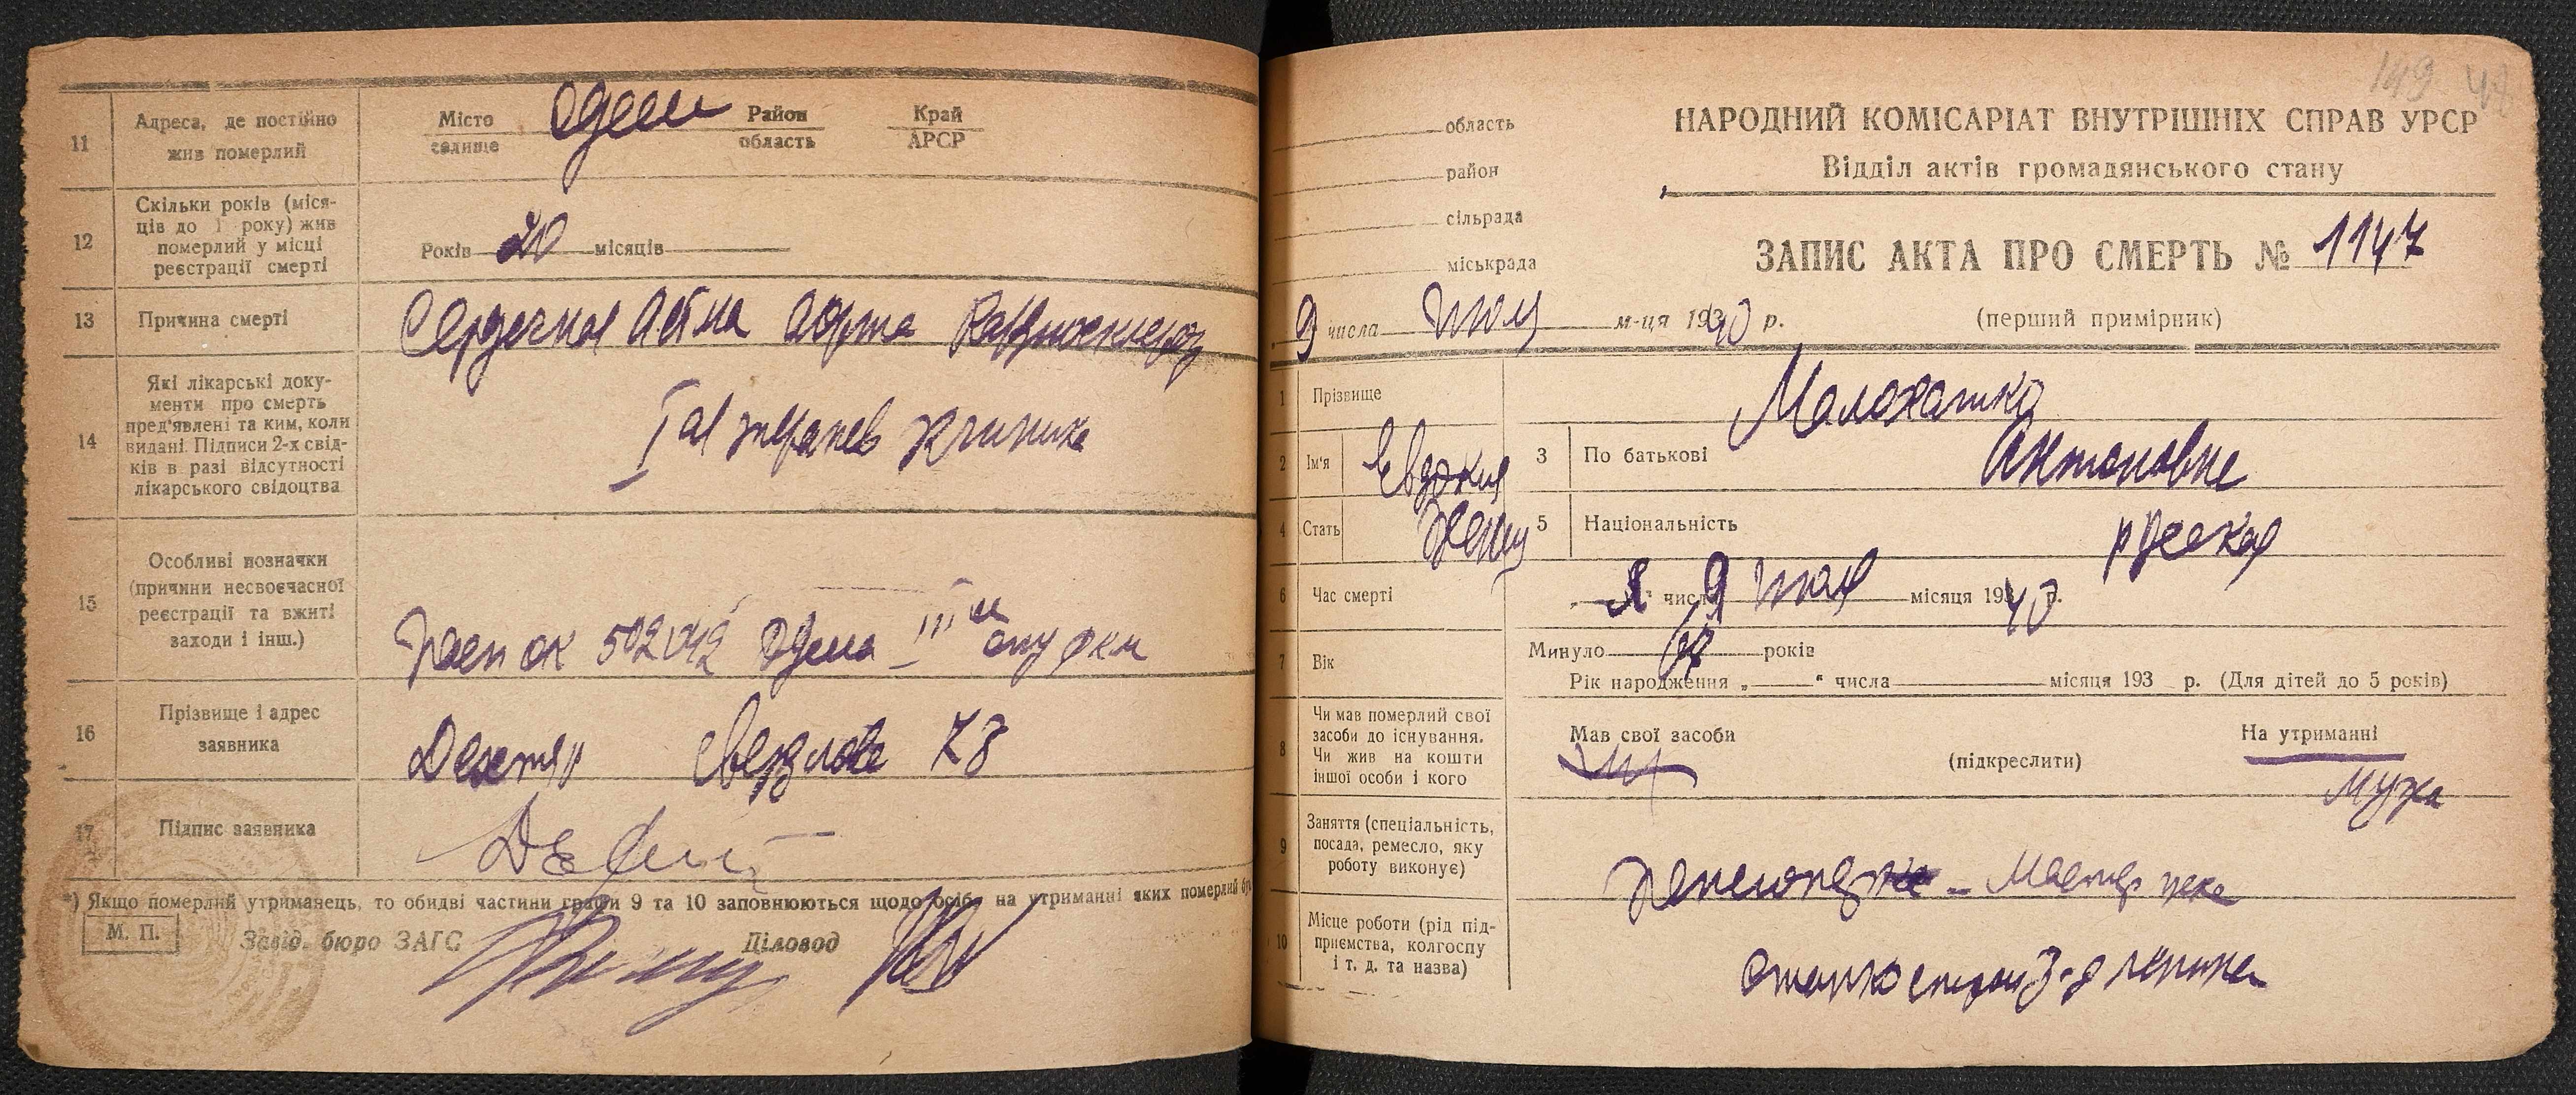 11
Адреса, де постійно
жив померлий
Місто
селище
Одесса
Район
область
Край
АРСР
12
Скільки років (міся-
ців до 1 року) жив
померлий у місці
реєстрації смерті
Років 20 місяців
13
Причина смерті
Сердечная астма аорта кардиосклероз
14
Які лікарські доку-
менти про смерть
пред'явлені та ким, коли
видані. Підписи 2-х свід-
ків в разі відсутності
лікарського свідоцтва
клиника
15
Особливі позначки
(причини несвоєчасної
реєстрації та вжиті
заходи і інш.)
502042 Одесса III
16
Прізвище і адрес
заявника
Свердлова 73
17
Підпис заявника
*) Якщо померлий утриманець, то обидві частини графи 9 та 10 заповнюються щодо осіб, на утриманні яких померлий
М. П.
Завід. бюро ЗАГС
Діловод
149
область
район
сільрада
міськрада
НАРОДНИЙ КОМІСАРІАТ ВНУТРІШНІХ СПРАВ УРСР
Відділ актів громадянського стану
ЗАПИС АКТА ПРО СМЕРТЬ № 1147
9 числа июля м-ця 1940 р.
(перший примірник)
1
Прізвище
Малохатка
2
Ім'я
Евдокия
3
По батькові
Антоновна
4
Стать
женщ
5
Національність
русская
6
Час смерті
числ 9 июля місяця 1940 р.
7
Вік
Минуло років
Рік народження „ “ числа місяця 193 р. (Для дітей до 5 років)
8
Чи мав померлий свої
засоби до існування.
Чи жив на кошти
іншої особи і кого
Мав свої засоби
(підкреслити)
На утриманні
мужа
9
Заняття (спеціальність,
посада, ремесло, яку
роботу виконує)
10
Місце роботи (рід під-
приємства, колгоспу
і т. д. та назва)